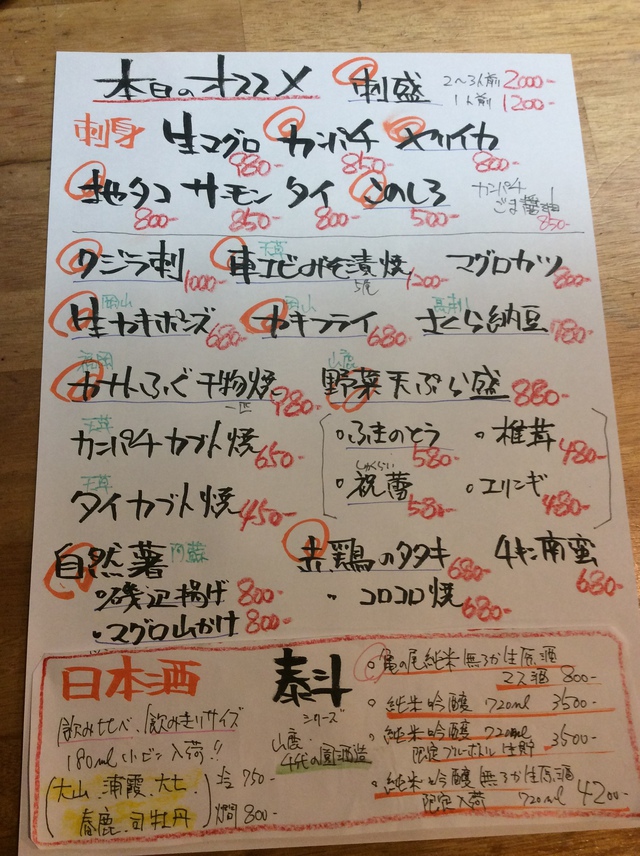 本日のオススメ 刺盛 2〜3人前 2000-
1人前 1200-
刺身 生マグロ 980- カンパチ 850- ヤリイカ 800-
地タコ 800- サーモン 850- タイ 800- このしろ 500- カンパチ ごま醤油 850-
クジラ刺 1000- 天草 車エビのみそ漬焼 1200- マグロカツ 800-
岡山 生カキポンズ 680- 岡山 カキフライ 680- さくら納豆 780-
福岡 カナトふぐ干物焼 一匹 980- 山鹿 野菜天ぷら盛 880-
天草 カンパチカブト焼 650- ・ふきのとう 580- ・椎茸 480-
天草 タイカブト焼 450- ・祝蕾 しゅくらい 580- ・エリンギ 480-
自然薯 阿蘇 赤鶏のタタキ 680- チキン南蛮 680-
・磯辺揚げ 800- ・コロコロ焼 680-
・マグロ山かけ 800-
日本酒 泰斗 シリーズ
山鹿 千代の園酒造
飲み比べ、飲みきりサイズ
180ml小ビン入荷!!
(大山、浦霞、大七
春鹿、司牡丹)
冷 750-
燗 800-
・亀の尾純米無ろか生原酒
マス酒 800-
・純米吟醸 720ml 3500-
・純米吟醸 720ml
限定ブルーボトル生貯 3500-
・純米吟醸無ろか生原酒
限定入荷 720ml 4200-